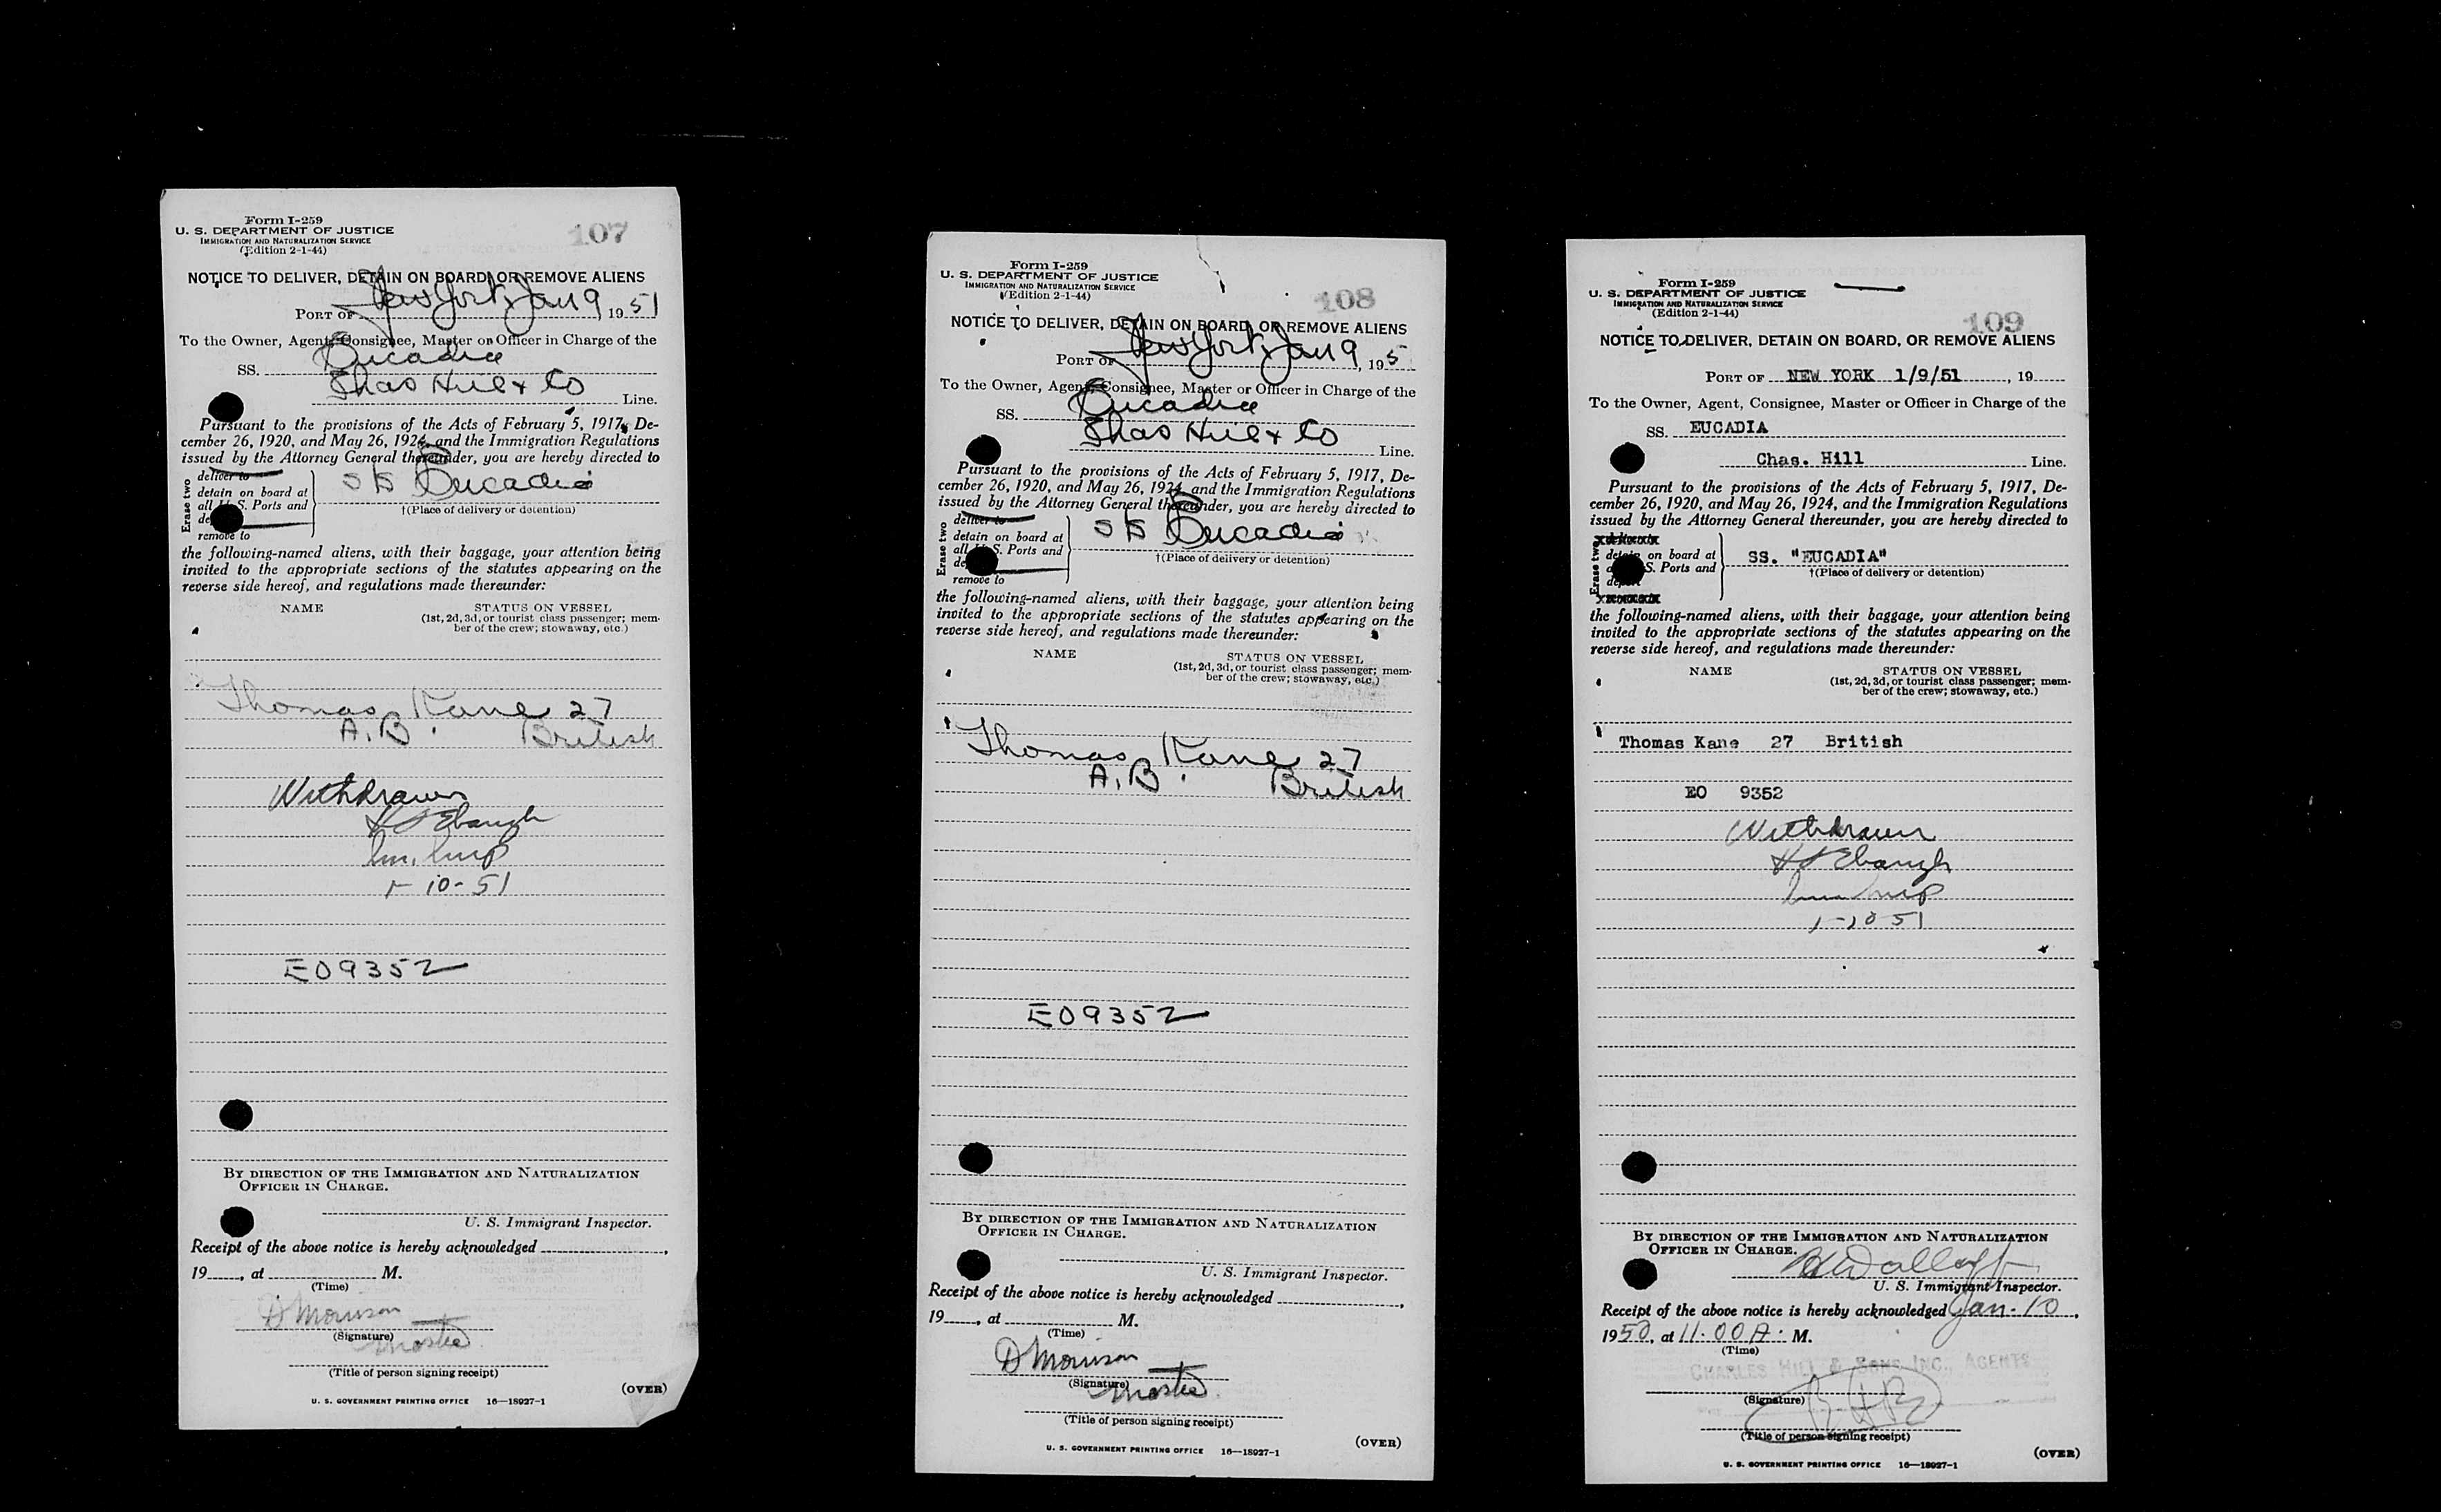 Form I-259
U. S. DEPARTMENT OF JUSTICE
IMMIGRATION AND NATURALIZATION SERVICE
(Edition 2-1-44)
107
NOTICE TO DELIVER, DETAIN ON BOARD, OR REMOVE ALIENS
PORT OF New York, Jan 9, 1951
To the Owner, Agent, Consignee, Master or Officer in Charge of the
SS. Eucadia
Chas Hill & Co Line.
Pursuant to the provisions of the Acts of February 5, 1917, De-
cember 26, 1920, and May 26, 1924, and the Immigration Regulations
issued by the Attorney General thereunder, you are hereby directed to
Erase two
deliver to
detain on board at
all U. S. Ports and
de
remove to
SS Eucadia
†(Place of delivery or detention)
the following-named aliens, with their baggage, your attention being
invited to the appropriate sections of the statutes appearing on the
reverse side hereof, and regulations made thereunder:
NAME STATUS ON VESSEL
(1st, 2d, 3d, or tourist class passenger; mem-
ber of the crew; stowaway, etc.)
Thomas Kane 27
A.B. British
Withdrawn
H S Ebaugh
Im. Insp
1-10-51
E09352
BY DIRECTION OF THE IMMIGRATION AND NATURALIZATION
OFFICER IN CHARGE.
U. S. Immigrant Inspector.
Receipt of the above notice is hereby acknowledged
19 , at M.
(Time)
D Morrison
(Signature)
Master
(Title of person signing receipt)
(OVER)
U. S. GOVERNMENT PRINTING OFFICE 16—18927-1
Form I-259
U. S. DEPARTMENT OF JUSTICE
IMMIGRATION AND NATURALIZATION SERVICE
(Edition 2-1-44)
108
NOTICE TO DELIVER, DETAIN ON BOARD, OR REMOVE ALIENS
PORT OF New York, Jan 9, 195
To the Owner, Agent, Consignee, Master or Officer in Charge of the
SS. Eucadia
Chas Hill & Co Line.
Pursuant to the provisions of the Acts of February 5, 1917, De-
cember 26, 1920, and May 26, 1924, and the Immigration Regulations
issued by the Attorney General thereunder, you are hereby directed to
Erase two
deliver to
detain on board at
all U. S. Ports and
de
remove to
SS Eucadia
†(Place of delivery or detention)
the following-named aliens, with their baggage, your attention being
invited to the appropriate sections of the statutes appearing on the
reverse side hereof, and regulations made thereunder:
NAME STATUS ON VESSEL
(1st, 2d, 3d, or tourist class passenger; mem-
ber of the crew; stowaway, etc.)
Thomas Kane 27
A.B. British
E09352
BY DIRECTION OF THE IMMIGRATION AND NATURALIZATION
OFFICER IN CHARGE.
U. S. Immigrant Inspector.
Receipt of the above notice is hereby acknowledged
19 , at M.
(Time)
D Morrison
(Signature)
Master
(Title of person signing receipt)
(OVER)
U. S. GOVERNMENT PRINTING OFFICE 16—18927-1
Form I-259
U. S. DEPARTMENT OF JUSTICE
IMMIGRATION AND NATURALIZATION SERVICE
(Edition 2-1-44)
109
NOTICE TO DELIVER, DETAIN ON BOARD, OR REMOVE ALIENS
PORT OF NEW YORK 1/9/51, 19
To the Owner, Agent, Consignee, Master or Officer in Charge of the
SS. EUCADIA
Chas. Hill Line.
Pursuant to the provisions of the Acts of February 5, 1917, De-
cember 26, 1920, and May 26, 1924, and the Immigration Regulations
issued by the Attorney General thereunder, you are hereby directed to
Erase two
detain on board at
S. Ports and
depart
SS. "EUCADIA"
†(Place of delivery or detention)
the following-named aliens, with their baggage, your attention being
invited to the appropriate sections of the statutes appearing on the
reverse side hereof, and regulations made thereunder:
NAME STATUS ON VESSEL
(1st, 2d, 3d, or tourist class passenger; mem-
ber of the crew; stowaway, etc.)
Thomas Kane 27 British
EO 9352
Withdrawn
H S Ebaugh
Imm Insp
1-10 51
BY DIRECTION OF THE IMMIGRATION AND NATURALIZATION
OFFICER IN CHARGE.
U. S. Immigrant Inspector.
Receipt of the above notice is hereby acknowledged Jan. 10,
1950, at 11.00 A. M.
(Time)
CHARLES HILL & SONS INC., AGENTS
(Signature)
(Title of person signing receipt)
(OVER)
U. S. GOVERNMENT PRINTING OFFICE 16—18927-1